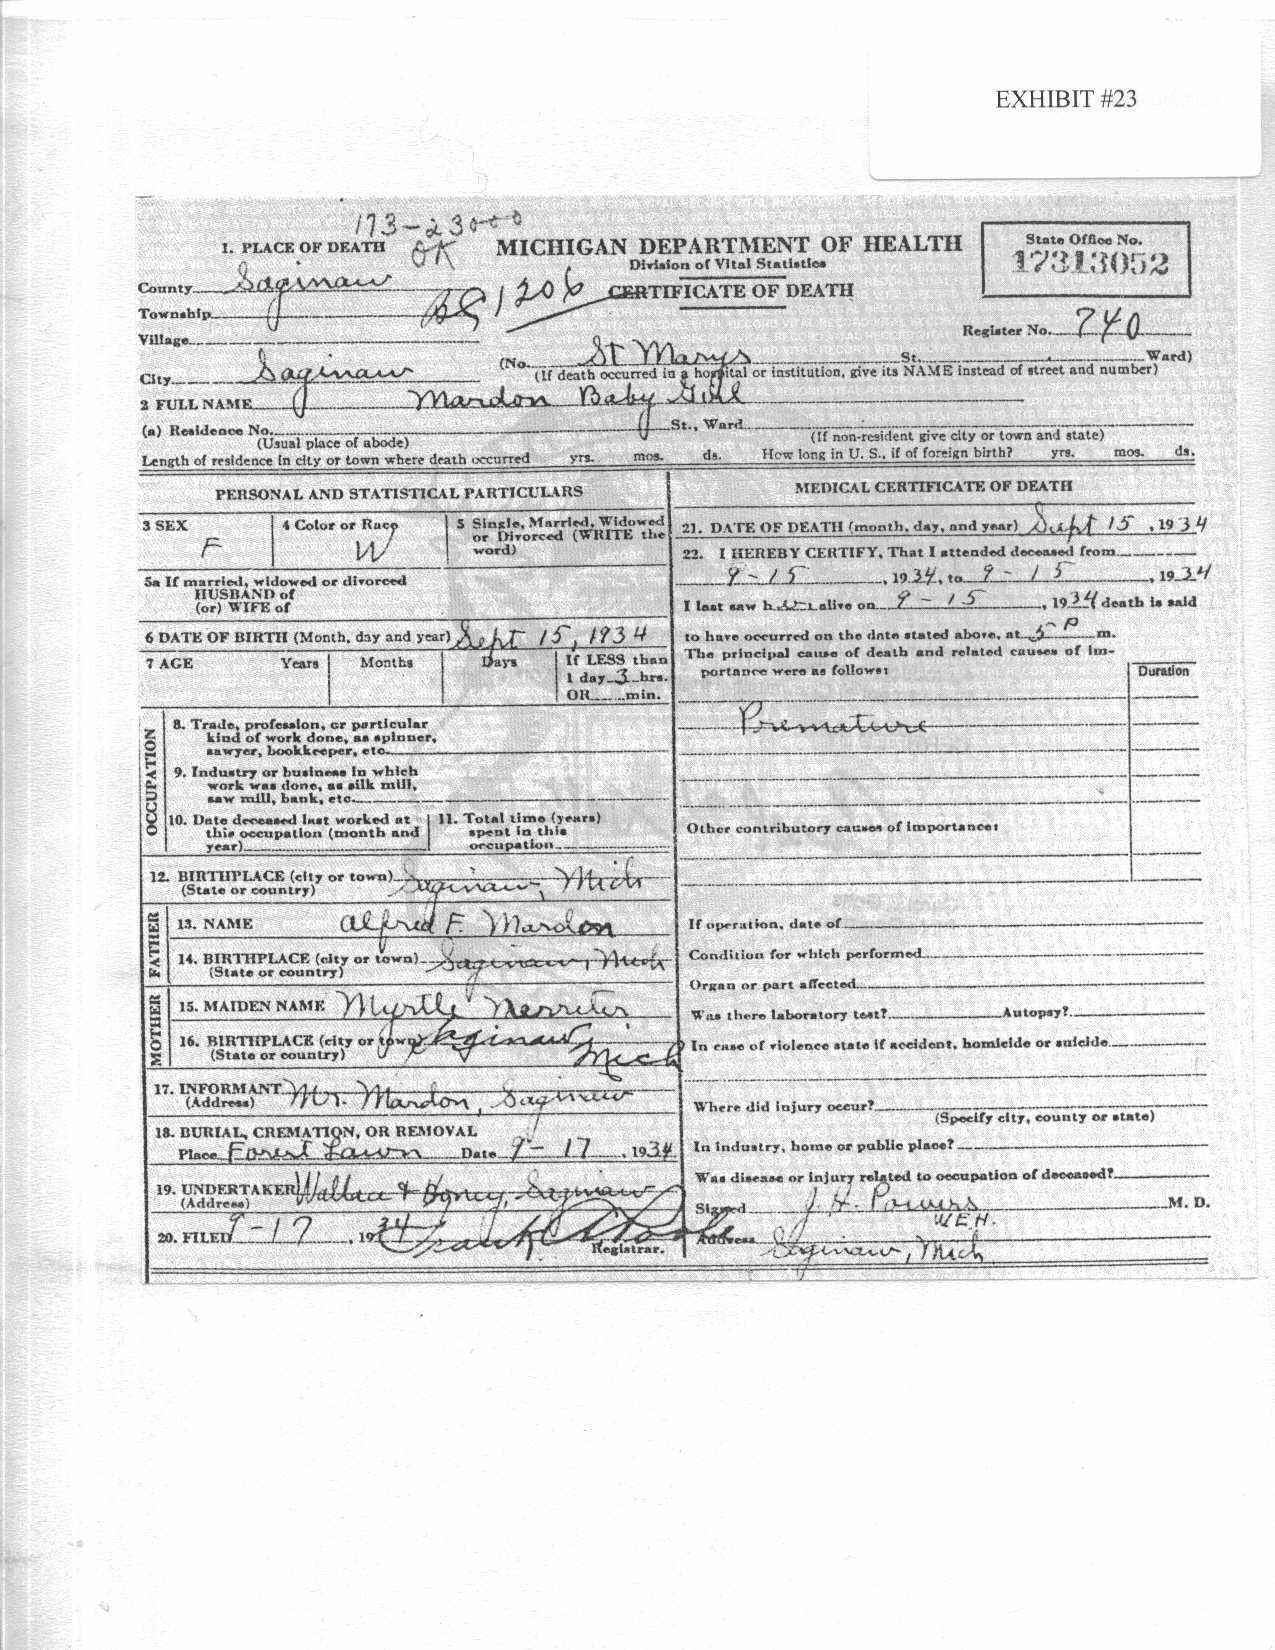 EXHIBIT #23
173-23000
1. PLACE OF DEATH OK MICHIGAN DEPARTMENT OF HEALTH
Division of Vital Statistics
State Office No.
17313052
County Saginaw
BG 1206 CERTIFICATE OF DEATH
Township
Village
Register No. 740
City Saginaw (No. St Marys St. Ward)
(If death occurred in a hospital or institution, give its NAME instead of street and number)
2 FULL NAME Mardon Baby Girl
(a) Residence No. St., Ward
(Usual place of abode) (If non-resident give city or town and state)
Length of residence in city or town where death occurred yrs. mos. ds. How long in U. S., if of foreign birth? yrs. mos. ds.
PERSONAL AND STATISTICAL PARTICULARS
3 SEX F
4 Color or Race W
5 Single, Married, Widowed
or Divorced (WRITE the
word)
5a If married, widowed or divorced
HUSBAND of
(or) WIFE of
6 DATE OF BIRTH (Month, day and year) Sept 15, 1934
7 AGE Years Months Days If LESS than
1 day 3 hrs.
OR min.
OCCUPATION
8. Trade, profession, or particular
kind of work done, as spinner,
sawyer, bookkeeper, etc.
9. Industry or business in which
work was done, as silk mill,
saw mill, bank, etc.
10. Date deceased last worked at
this occupation (month and
year)
11. Total time (years)
spent in this
occupation
12. BIRTHPLACE (city or town) Saginaw, Mich
(State or country)
FATHER
13. NAME Alfred F. Mardon
14. BIRTHPLACE (city or town) Saginaw, Mich
(State or country)
MOTHER
15. MAIDEN NAME Myrtle
16. BIRTHPLACE (city or town) Saginaw
(State or country) Mich
17. INFORMANT Mr. Mardon, Saginaw
(Address)
18. BURIAL, CREMATION, OR REMOVAL
Place Forest Lawn Date 9-17, 1934
19. UNDERTAKER Wallace & Saginaw
(Address)
20. FILED 9-17, 1934 Frank
Registrar.
MEDICAL CERTIFICATE OF DEATH
21. DATE OF DEATH (month, day, and year) Sept 15, 1934
22. I HEREBY CERTIFY, That I attended deceased from
9-15, 1934, to 9-15, 1934
I last saw her alive on 9-15, 1934 death is said
to have occurred on the date stated above, at 5 P m.
The principal cause of death and related causes of im-
portance were as follows:
Duration
Premature
Other contributory causes of importance:
If operation, date of
Condition for which performed
Organ or part affected
Was there laboratory test? Autopsy?
In case of violence state if accident, homicide or suicide
Where did injury occur?
(Specify city, county or state)
In industry, home or public place?
Was disease or injury related to occupation of deceased?
Signed J. H. Powers M. D.
W.E.H.
Address Saginaw, Mich